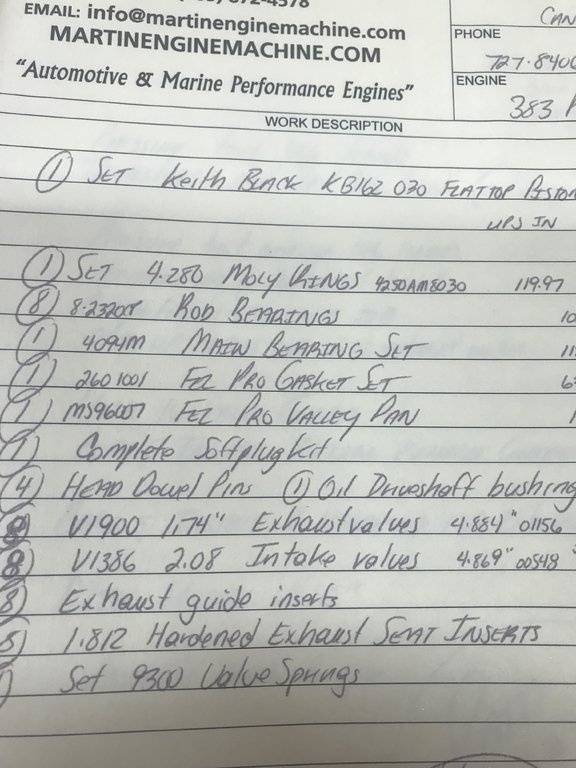 872-4578
EMAIL: info@martinenginemachine.com
MARTINENGINEMACHINE.COM
"Automotive & Marine Performance Engines"
CAN
PHONE
727-8400
ENGINE
383
WORK DESCRIPTION
① SET Keith BLACK KB162 030 FLATTOP PISTON
UPS IN
① SET 4.280 MOLY RINGS 4280AM8030 119.97
⑧ 8-2320CP ROD BEARINGS 10
① 4094M MAIN BEARING SET 11
① 2601001 FEL PRO GASKET SET 6
① MS96007 FEL PRO VALLEY PAN 1
① Complete Softplug kit
④ HEAD Dowel Pins ① Oil Driveshaft bushing
⑧ V1900 1.74" Exhaust valves 4.884" 01156
⑧ V1386 2.08 Intake valves 4.869" 00548
⑧ Exhaust guide inserts
1.812 Hardened Exhaust SEAT INSERTS
Set 9300 Valve Springs